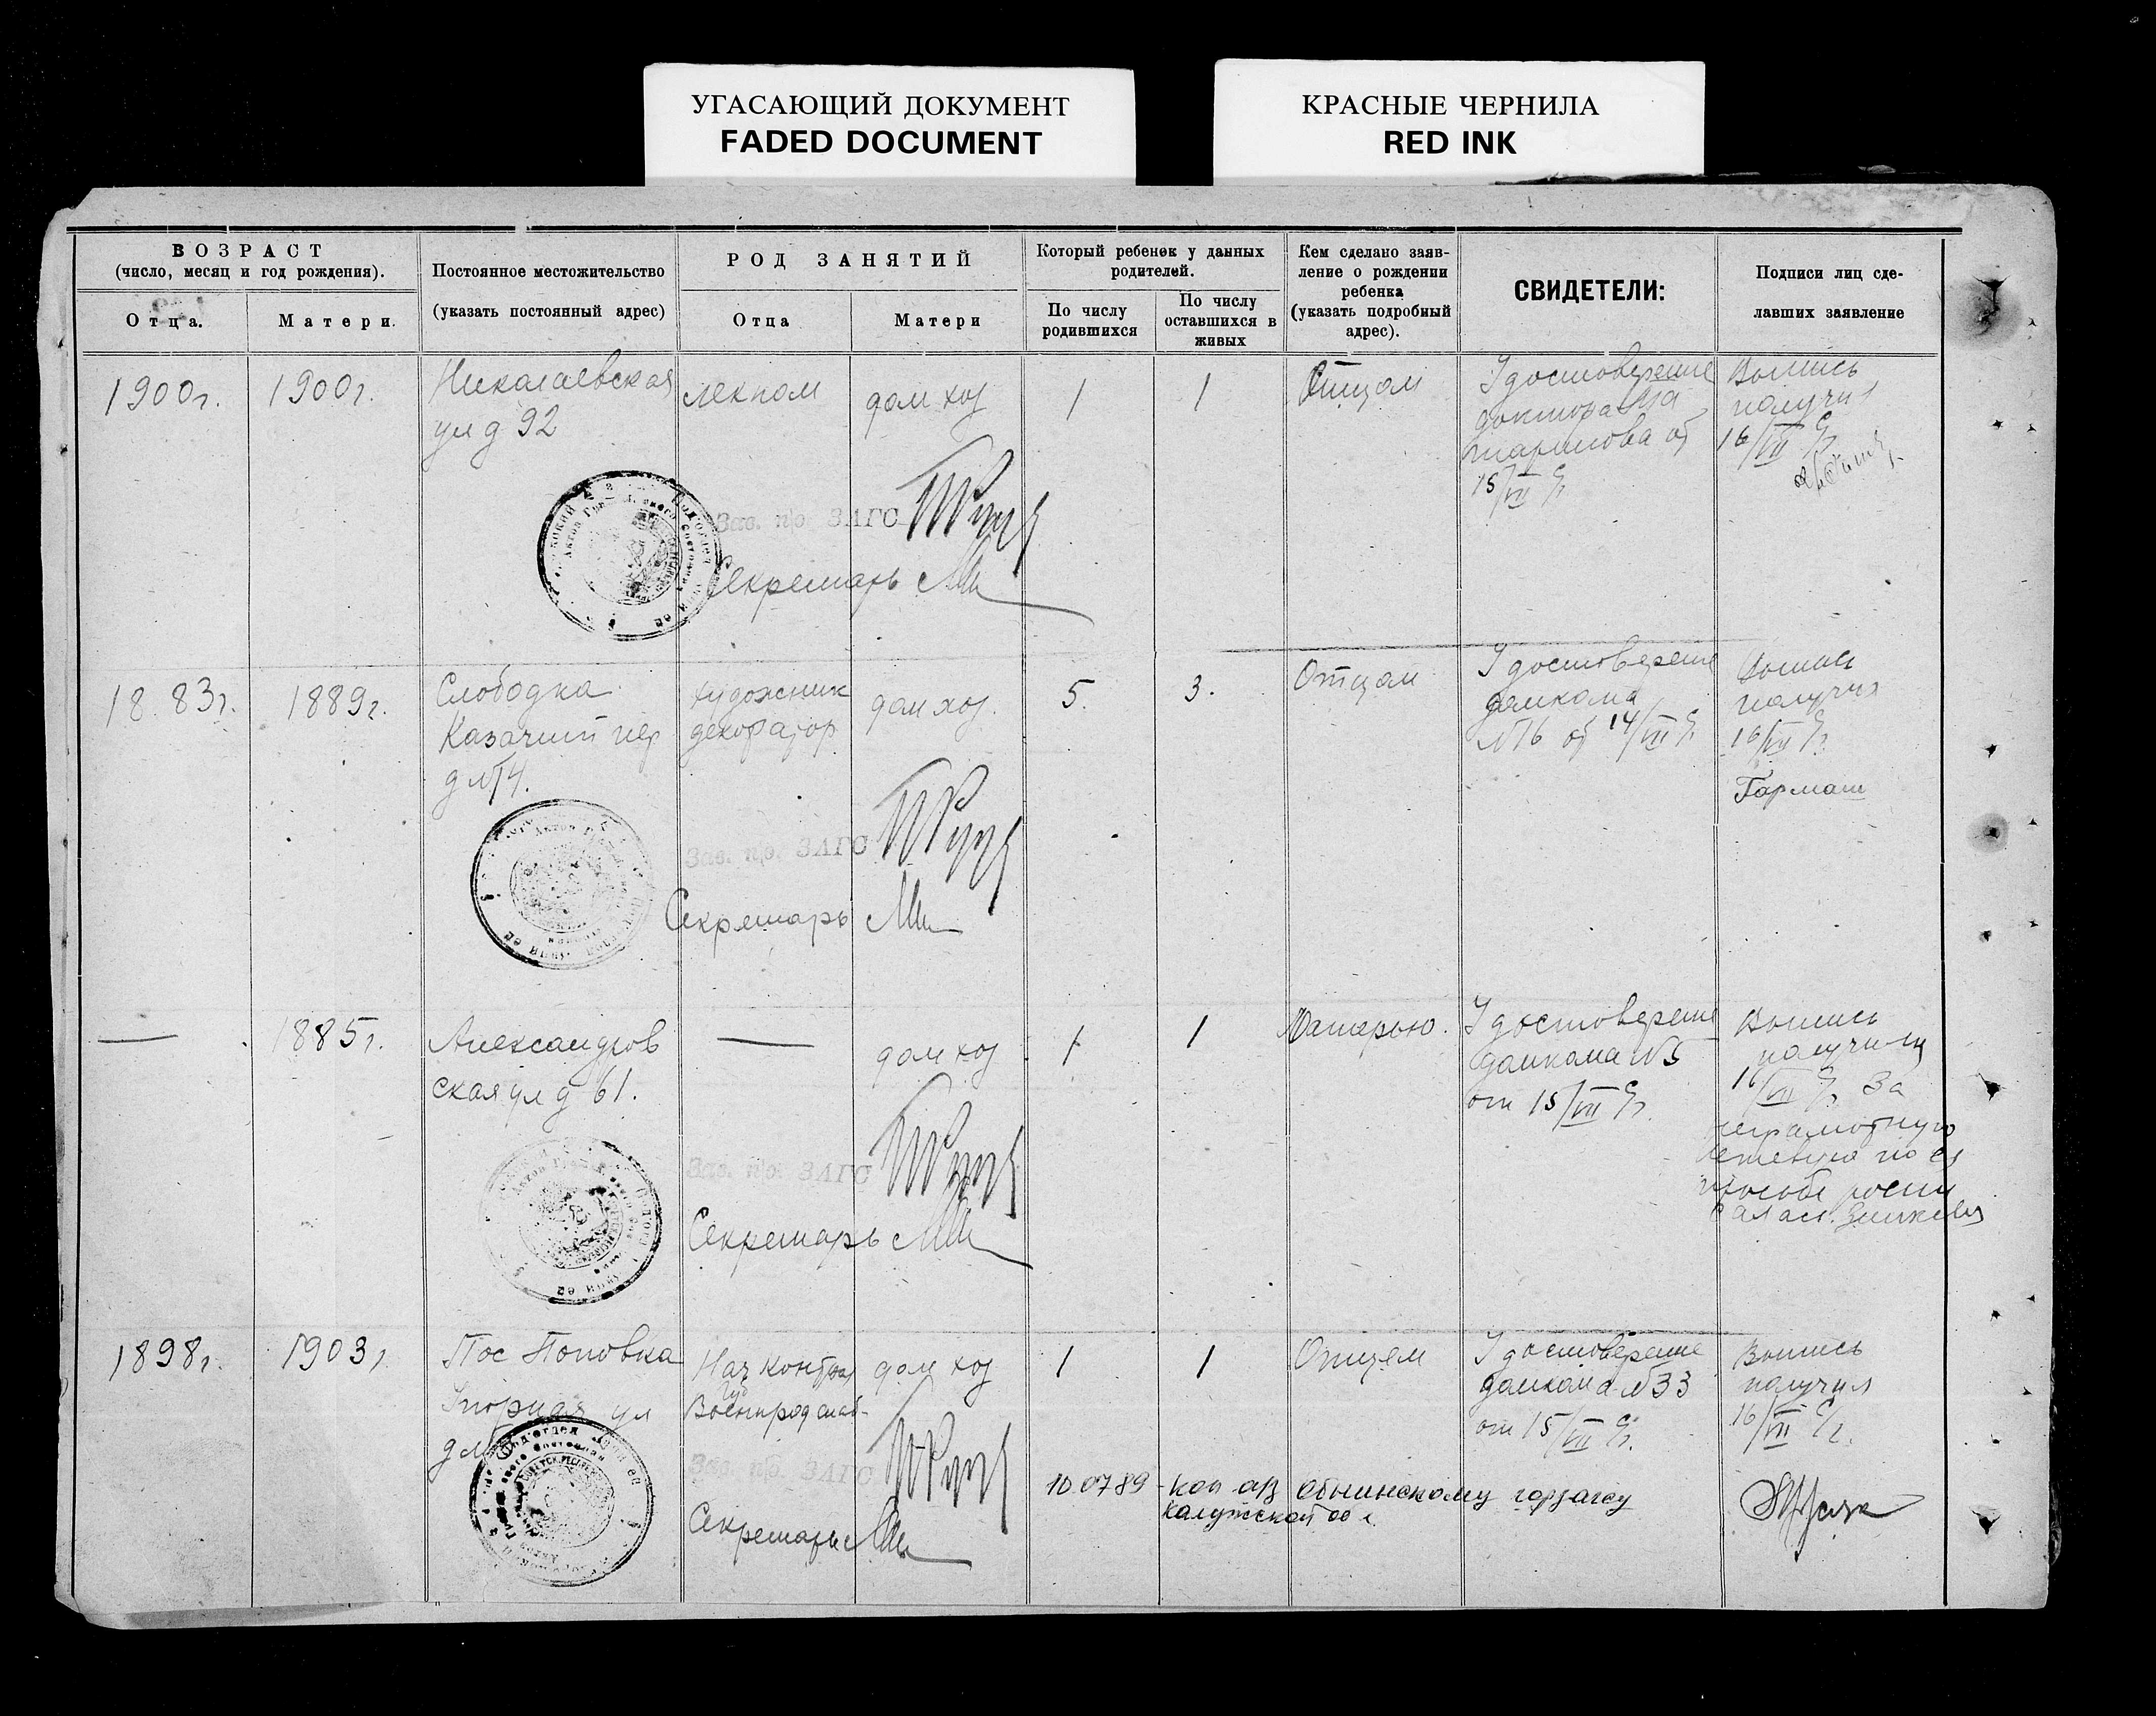 УГАСАЮЩИЙ ДОКУМЕНТ
FADED DOCUMENT
КРАСНЫЕ ЧЕРНИЛА
RED INK
ВОЗРАСТ
(число, месяц и год рождения).
Отца.
Матери.
Постоянное местожительство
(указать постоянный адрес)
РОД ЗАНЯТИЙ
Отца
Матери
Который ребенок у данных
родителей.
По числу
родившихся
По числу
оставшихся в
живых
Кем сделано заяв-
ление о рождении
ребенка
(указать подробный
адрес).
СВИДЕТЕЛИ:
Подписи лиц сде-
лавших заявление
1900г.
1900г.
Николаевская
ул д 92
лекпом
дом хоз
1
1
Отцом
Удостоверение
доктора
от
15/VII
Выпись
получил
16/VII
Зав. п/о. ЗАГС
Секретарь
1883г.
1889г.
Слободка
Казачий пер
д №4.
художник
декоратор
дом хоз.
5.
3.
Отцом
Удостоверение
домкома
№6 от 14/VII
Выпись
получил
16/VII
Гармаш
Зав. п/о. ЗАГС
Секретарь
—
1885г.
Александров
ская ул д 61.
—
дом хоз
1
1
Матерью.
Удостоверение
домкома №5
от 15/VII
Выпись
получила
16/VII За
неграмотную
по ея
просьбе
Зав. п/о. ЗАГС
Секретарь
1898г.
1903г
Пос Поповка
ул
Нач контр
Военпродснаб-
дом хоз
1
1
Отцем
Удостоверение
домкома №33
от 15/VII
Выпись
получил
16/VII
Зав. п/о. ЗАГС
Секретарь
10.07.89 - коп а/з Обнинскому горзагсу
Калужской об л.